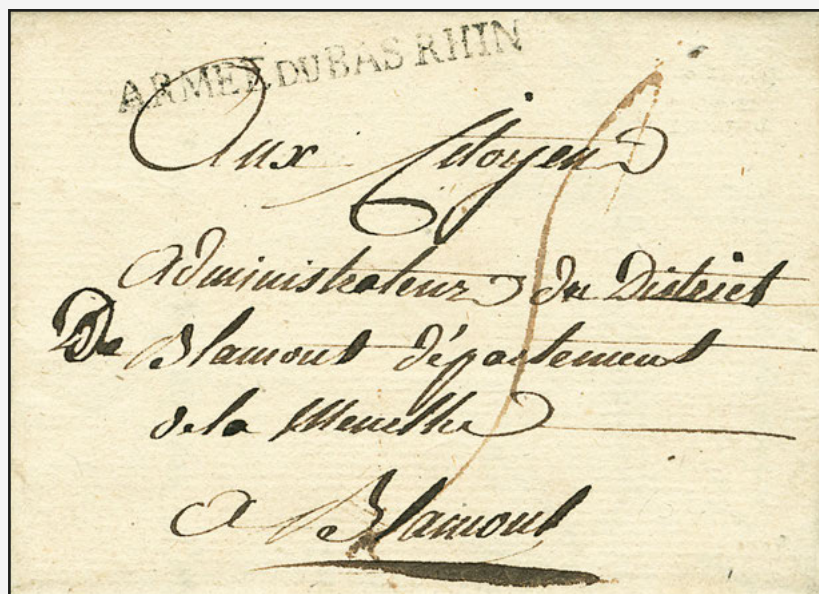 ARMÉE DU BAS RHIN
Aux Citoyens
administrateurs du District
De Blamont département
de la Meurthe
a Blamont